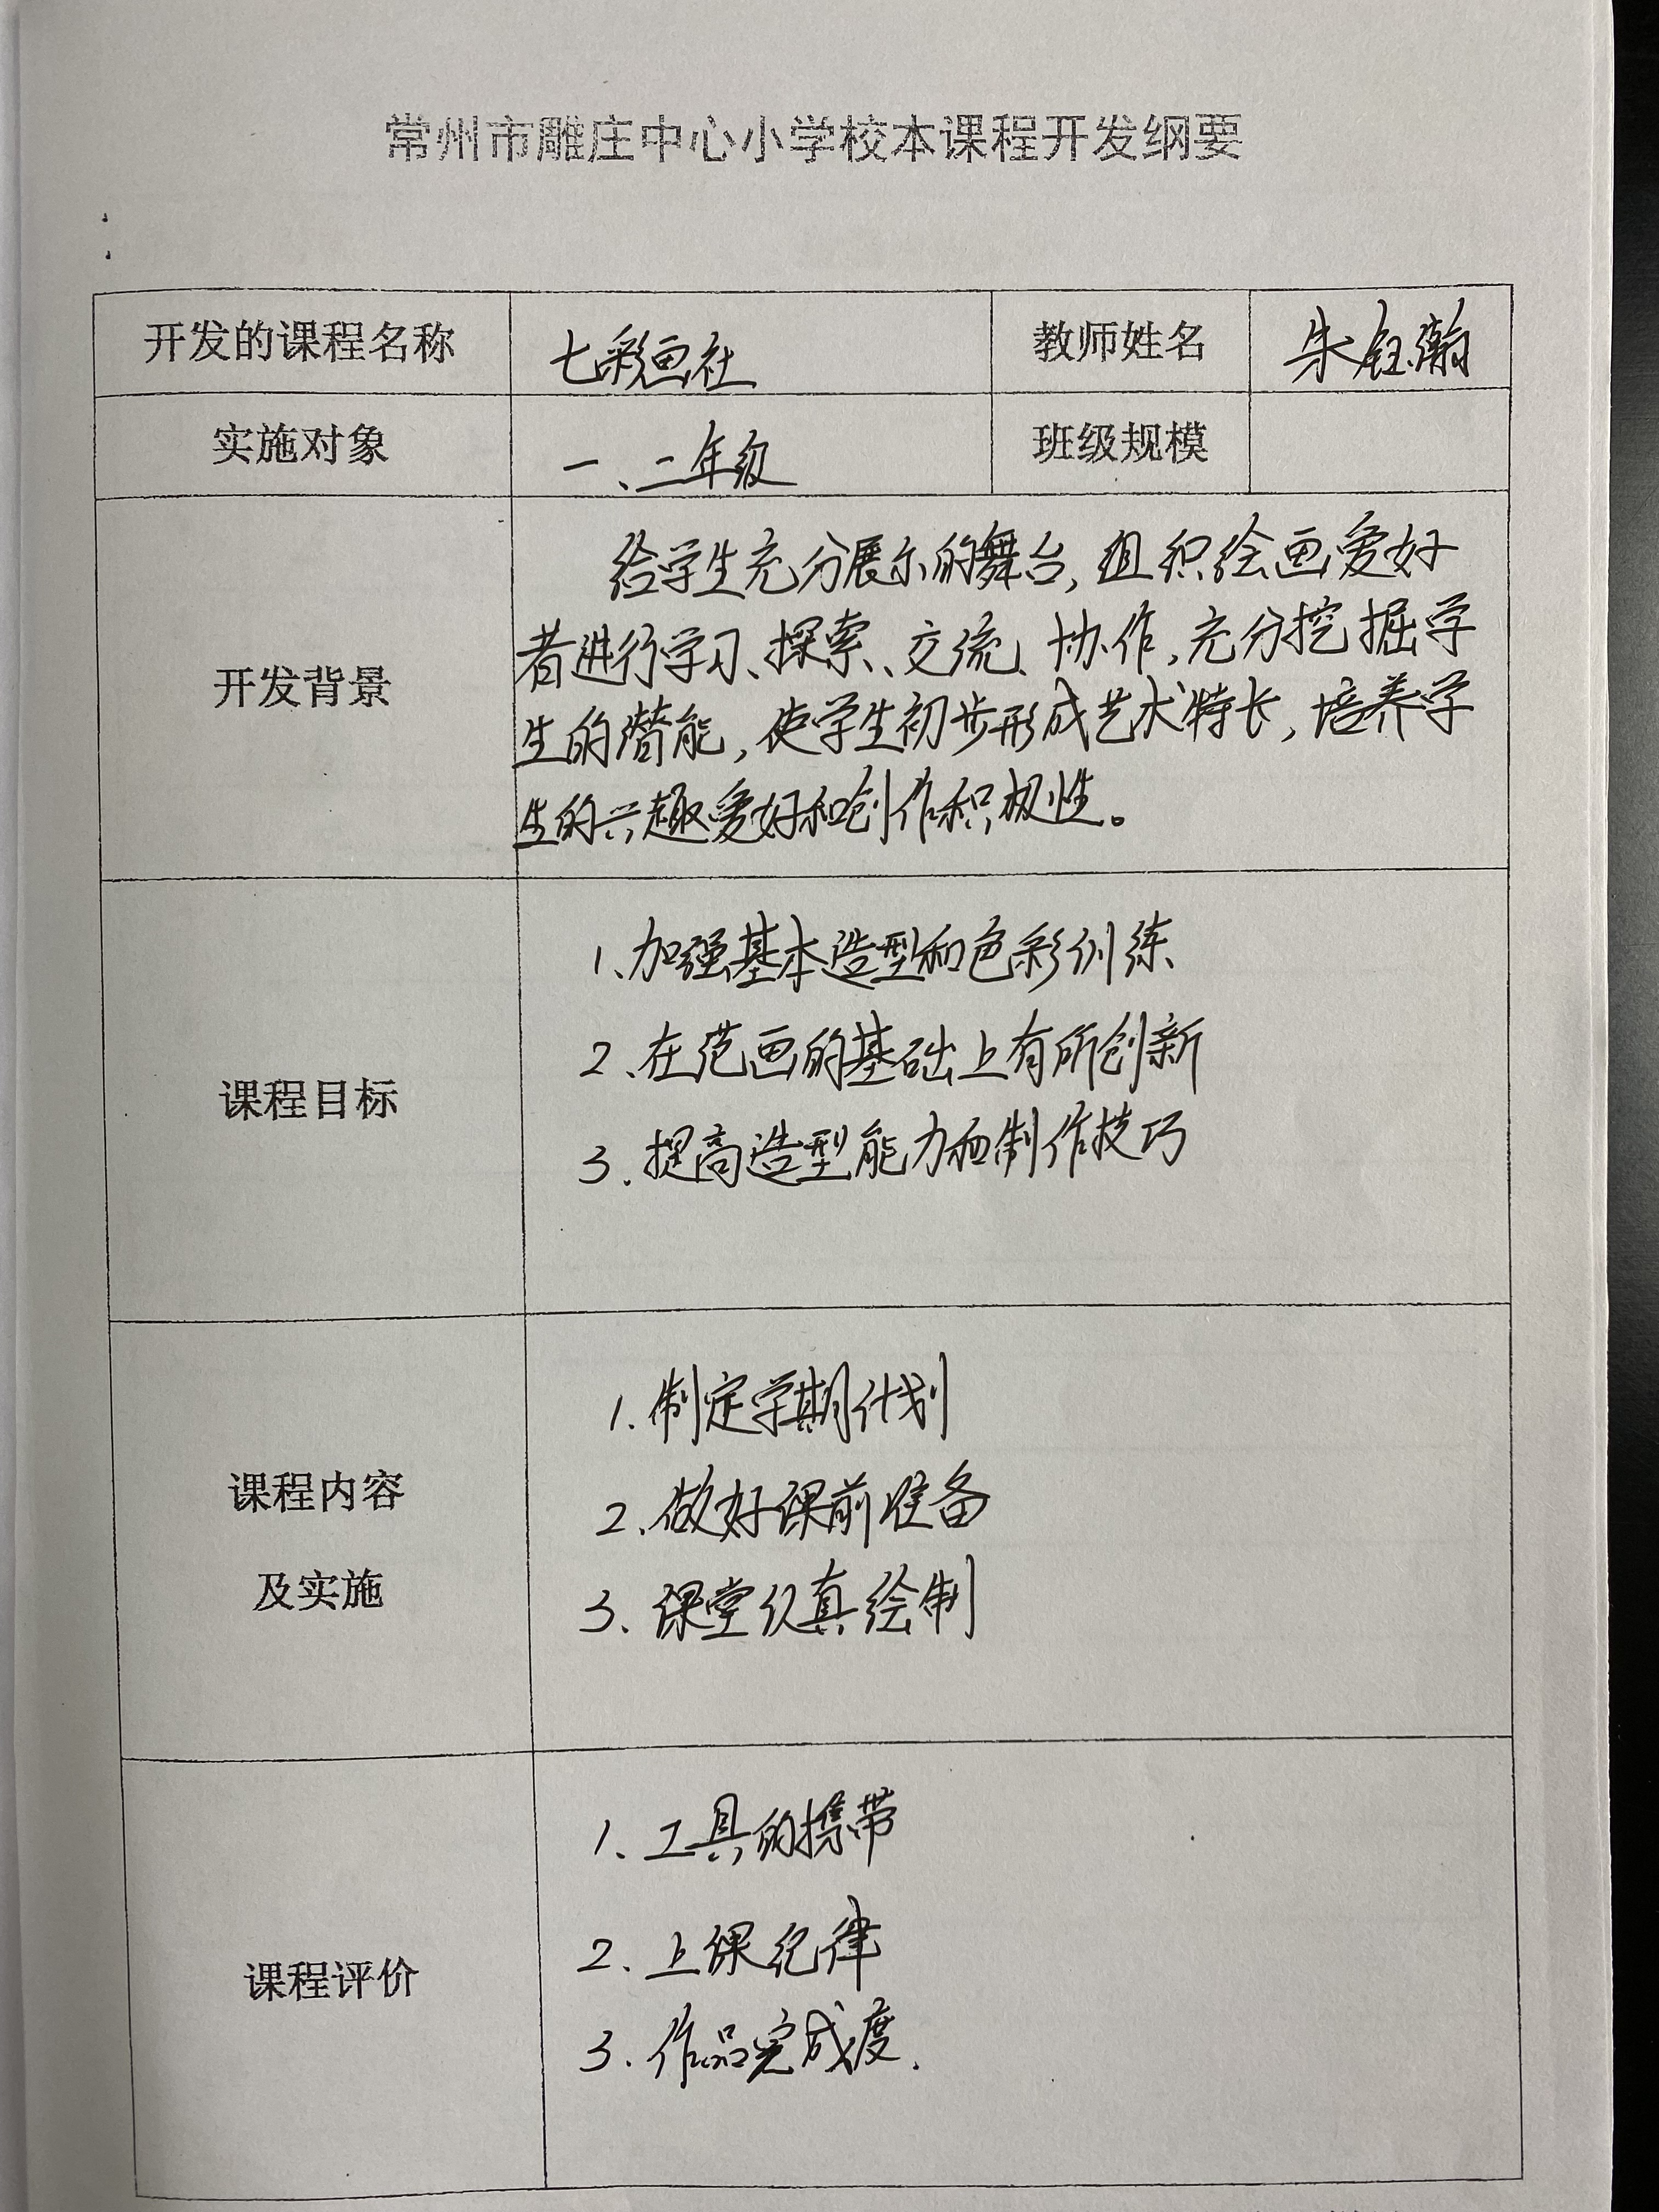 常州市雕庄中心小学校本课程开发纲要
开发的课程名称 七彩画社 教师姓名 朱钰瀚
实施对象 一、二年级 班级规模
开发背景
给学生充分展示的舞台,组织绘画爱好
者进行学习、探索、交流、协作,充分挖掘学
生的潜能,使学生初步形成艺术特长,培养学
生的兴趣爱好和创作积极性。
课程目标
1、加强基本造型和色彩训练
2、在范画的基础上有所创新
3.提高造型能力和制作技巧
课程内容
及实施
1.制定学期计划
2.做好课前准备
3.课堂认真绘制
课程评价
1、工具的携带
2.上课纪律
3.作品完成度.